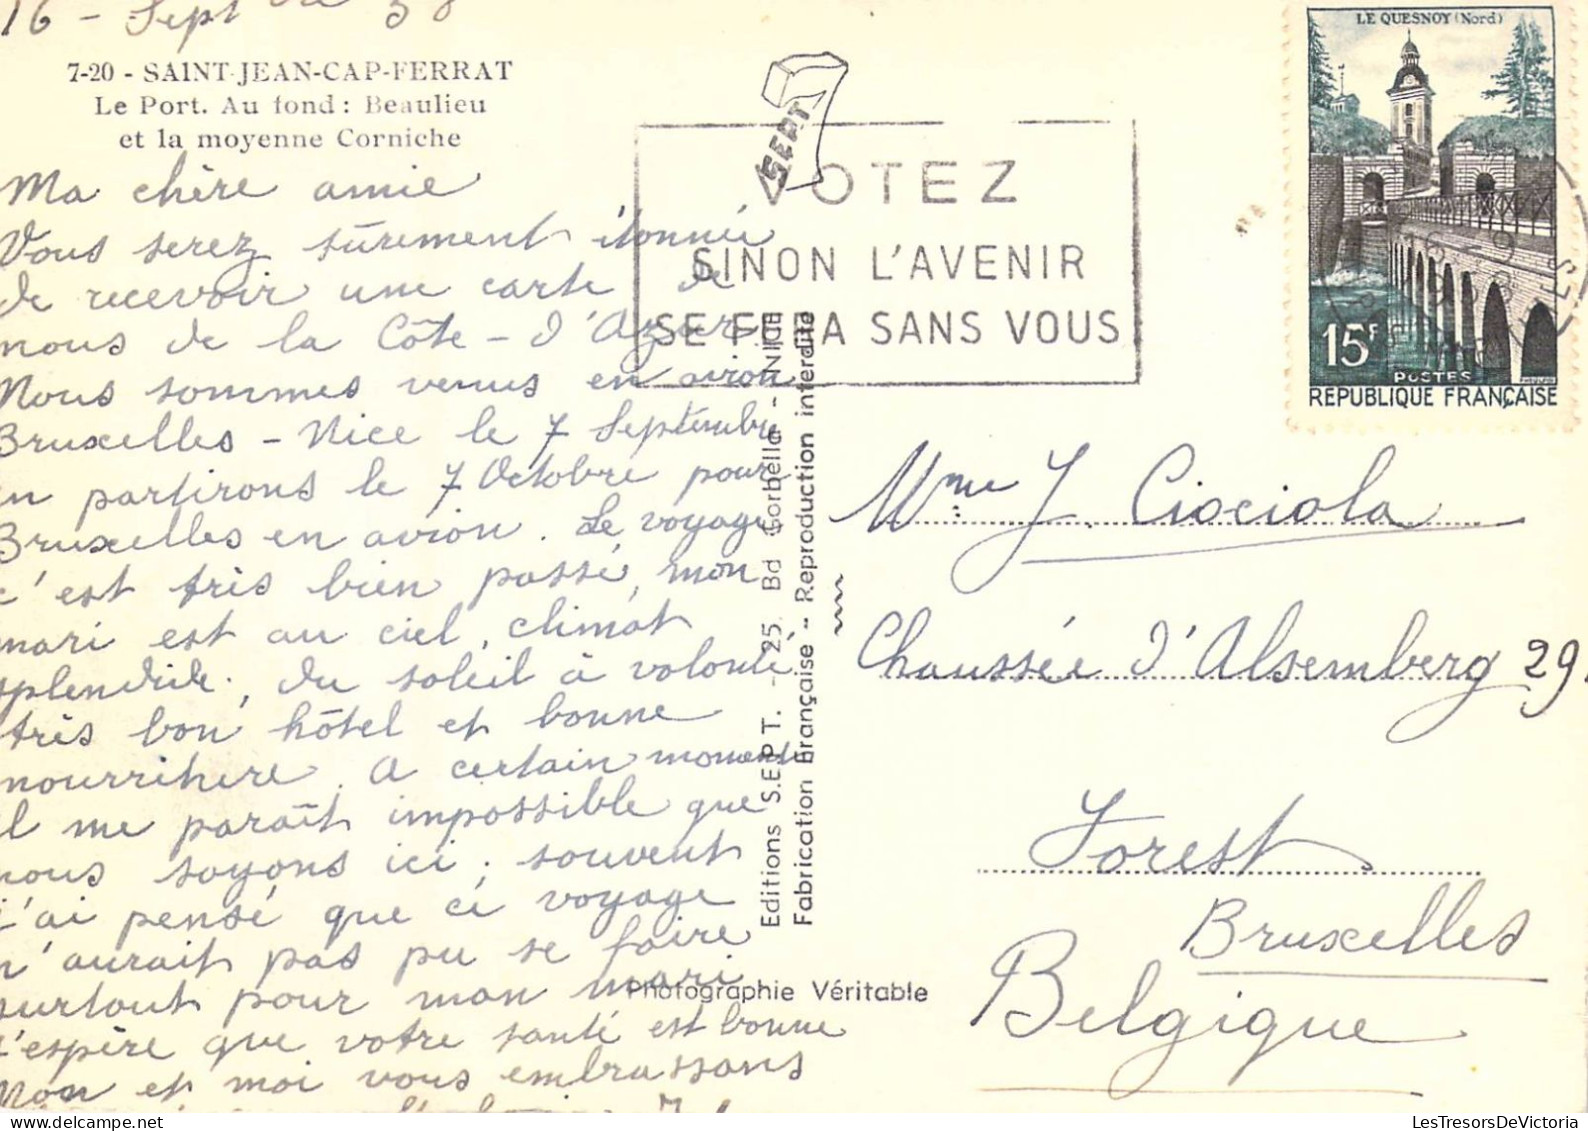 16 - Sept 58
7-20 - SAINT-JEAN-CAP-FERRAT
Le Port. Au fond : Beaulieu
et la moyenne Corniche
Ma chère amie
Vous serez sûrement étonnée
de recevoir une carte de
nous de la Côte-d'Azur.
Nous sommes venus en avion
Bruxelles - Nice le 7 Septembre
en partirons le 7 Octobre pour
Bruxelles en avion. Le voyage
c'est très bien passé, mon
mari est au ciel, climat
splendide, du soleil à volonté
très bon hôtel et bonne
nourriture. A certain moments
il me paraît impossible que
nous soyons ici, souvent
j'ai pensé que ce voyage
n'aurait pas pu se faire
surtout pour mon mari
j'espère que votre santé est bonne
Non et moi vous embrassons
SEPT
VOTEZ
SINON L'AVENIR
SE FERA SANS VOUS
Editions S.E.P.T. - 25. Bd Gorbella - NICE
Fabrication Française - Reproduction interdite
Photographie Véritable
LE QUESNOY (Nord)
15F
POSTES
REPUBLIQUE FRANÇAISE
Mme J. Ciociola
Chaussée d'Alsemberg 29
Forest
Bruxelles
Belgique
LesTresorsDeVictoria.com